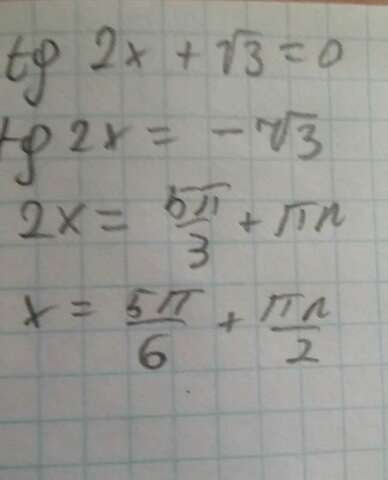 tg 2x + √3 = 0
tg 2x = - √3
2x = 5π/3 + πn
x = 5π/6 + πn/2